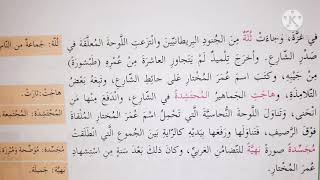 في غَزَّةَ، وَجاءَتْ ثُلَّةٌ مِنَ الجُنودِ البِريطانِيّينَ وانْتَزَعَتِ اللَّوحةَ المُعلَّقةَ في
صَدْرِ الشّارِعِ. وأخرَجَ تِلميذٌ لَمْ يَتَجاوَزِ العاشِرَةَ مِنْ عُمْرِهِ (طَبْشورَةً)
مِنْ جَيْبِهِ، وكَتَبَ اسمَ عُمَرَ المُختارِ على حائِطِ الشّارِعِ، وتَبِعَهُ بَعْضُ
التّلامِذَةِ، وهاجَتِ الجَماهيرُ المُحتَشِدةُ في الشّارِعِ، واندَفَعَ مِنْها مَنِ
انْحَنى، وتَناوَلَ اللَّوحةَ النُّحاسيَّةَ الَّتي تَحْمِلُ اسْمَ عُمَرَ المُختارِ المُلقاةَ
فوْقَ الرَّصيفِ، فتَناوَلَها ورَفَعَها بِيَدَيْهِ كالرّايَةِ بَيْنَ الجُموعِ الَّتي انْطَلَقَتْ
مُجَسِّدةً صورةً بَهيَّةً لِلتّضامُنِ العَرَبيِّ، وكانَ ذٰلِكَ بَعْدَ سَنَةٍ مِنِ اسْتِشهادِ
عُمَرَ المُخْتارِ.
ثُلَّة: جَماعةٌ مِنَ النّاسِ
هاجَتْ: ثارَتْ.
المُحْتَشِدَة: المُجْتَمِعَة.
مُجَسِّدة: مُوَضِّحة
بَهيَّة: جَميلة.